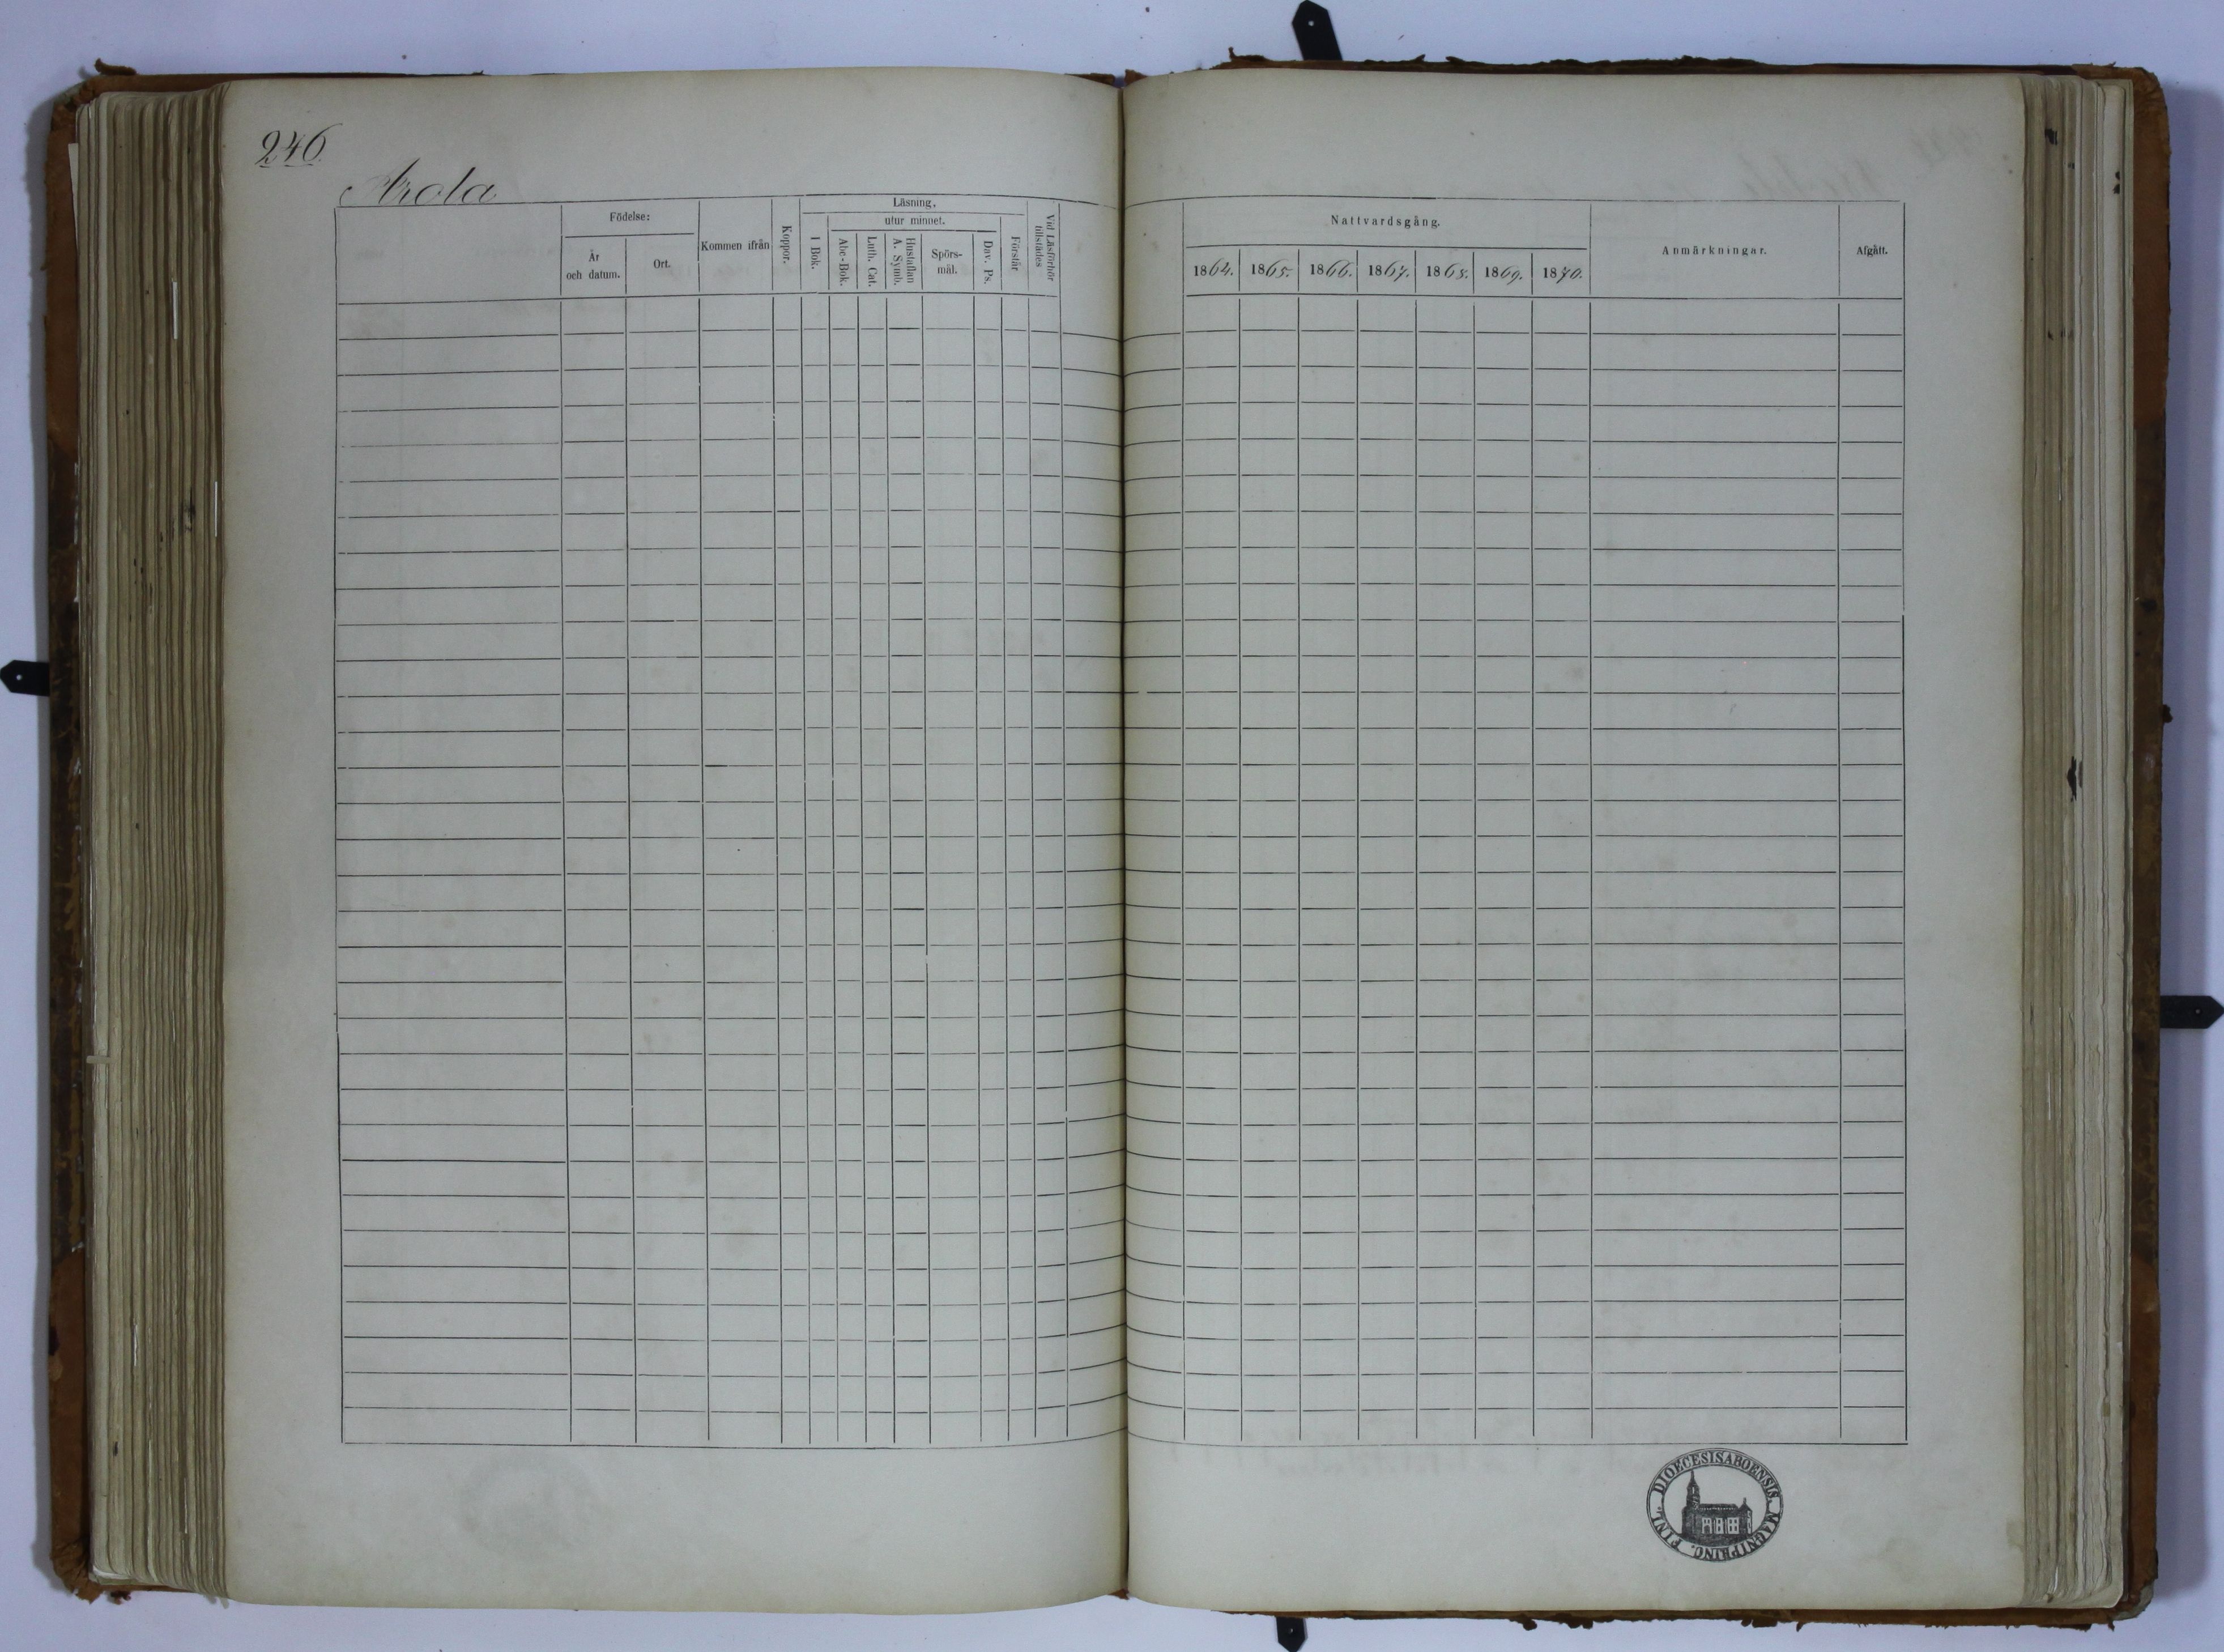 246.
Arola
Födelse:
År och datum.
Ort.
Kommen ifrån
Koppor.
Läsning,
utur minnet.
I Bok.
Abc-Bok.
Luth. Cat.
Hustaflan A. Symb.
Spörs-
mål.
Dav. Ps.
Förstår
Vid Läsförhör tillstädes
Nattvardsgång.
1864. 1865. 1866. 1867. 1868. 1869. 1870.
Anmärkningar.
Afgått.
DIOECESIS ABOENSIS. MAGNI PRINC. FINL.